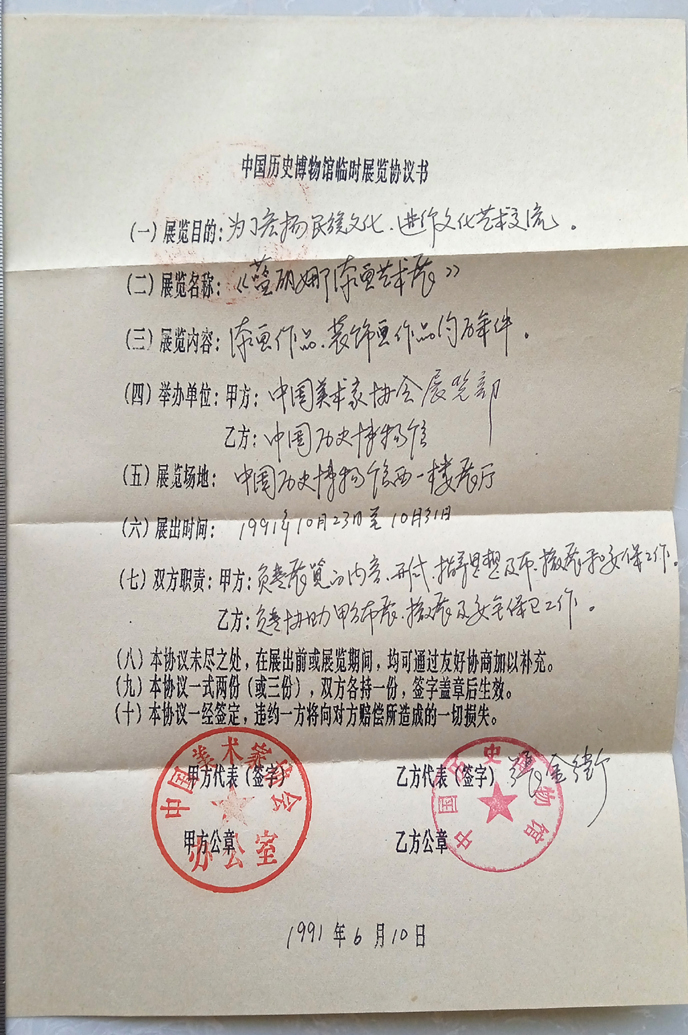 中国历史博物馆临时展览协议书
(一)展览目的:为了宏扬民族文化、进行文化艺术交流。
(二)展览名称:《漆画艺术展》
(三)展览内容:漆画作品、装饰画作品约百余件。
(四)举办单位:甲方:中国美术家协会展览部
乙方:中国历史博物馆
(五)展览场地:中国历史博物馆西一楼展厅
(六)展出时间:1991年10月23日至10月31日
(七)双方职责:甲方:负责展览的内容、形式、指导思想及布、撤展和安保工作。
乙方:负责协助甲方布展、撤展及安全保卫工作。
(八)本协议未尽之处,在展出前或展览期间,均可通过友好协商加以补充。
(九)本协议一式两份(或三份),双方各持一份,签字盖章后生效。
(十)本协议一经签定,违约一方将向对方赔偿所造成的一切损失。
中国美术家协会
办公室
甲方代表(签字)
甲方公章
中国历史博物馆
乙方代表(签字)
乙方公章
1991年6月10日